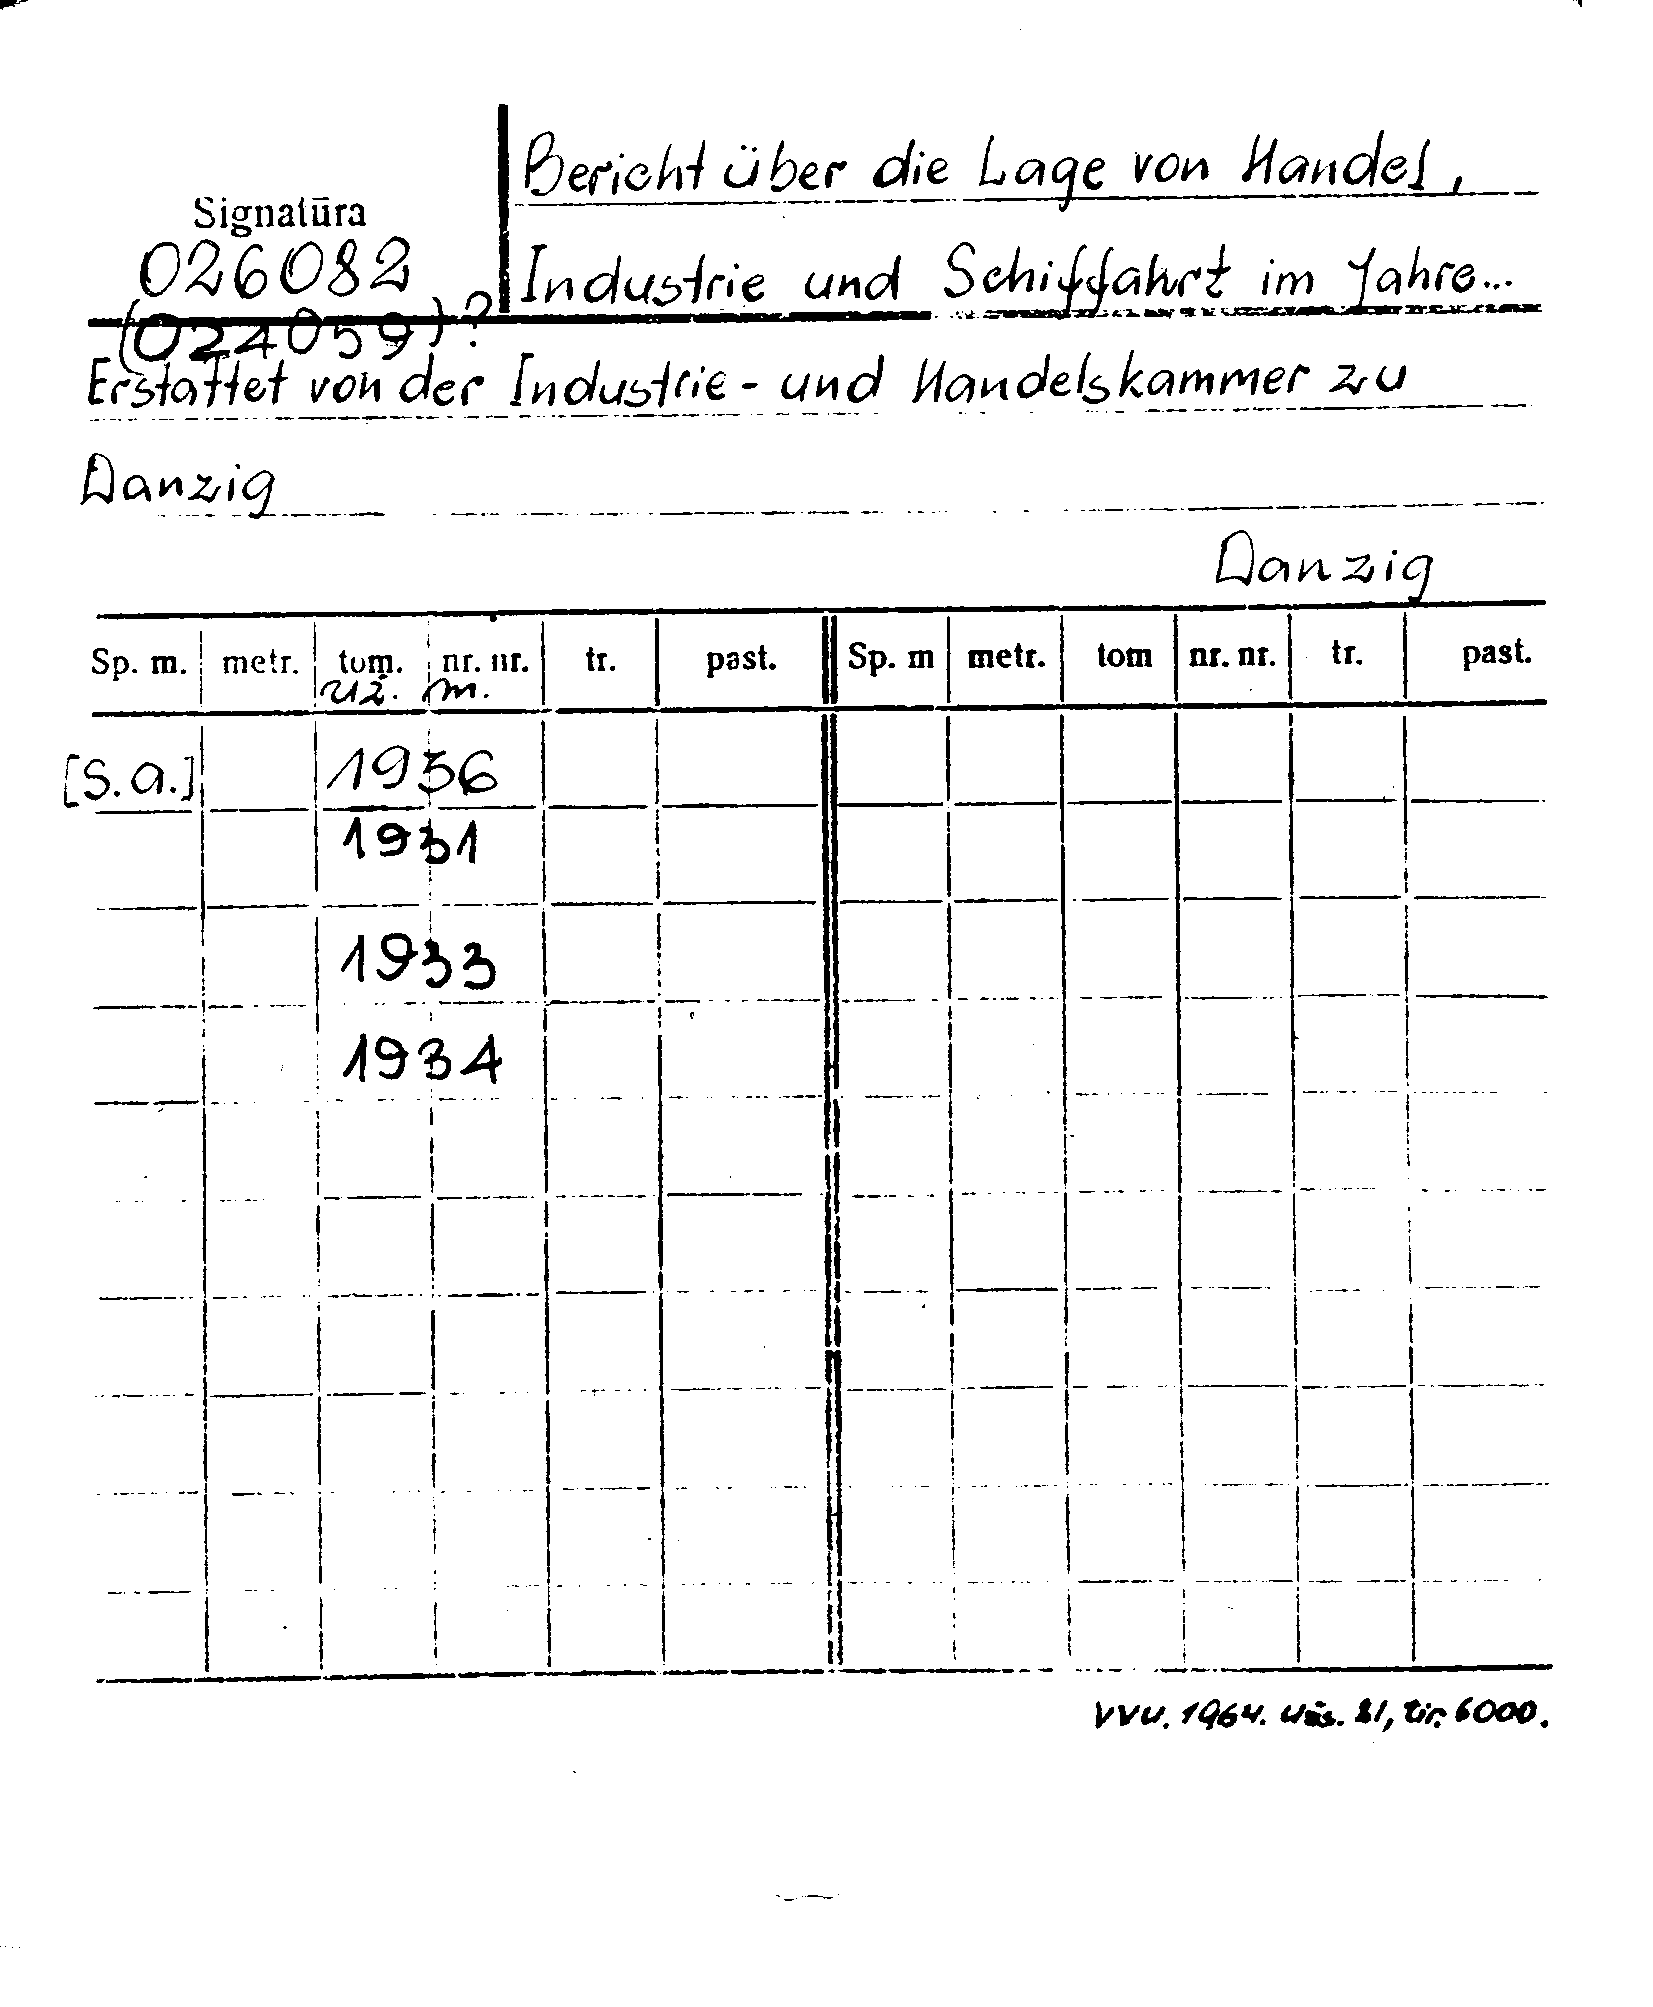 Bericht über die Lage von Handel,
Signatūra
026082
Industrie und Schiffahrt im Jahre...
(024059)?
Erstattet von der Industrie- und Handelskammer zu
Danzig
Danzig
Sp. m. metr. tom. nr. nr. tr. past. Sp. m metr. tom nr. nr. tr. past.
už. m.
[S.a.] 1936
1931
1933
1934
VVU. 1964. Užs. 81, tir. 6000.